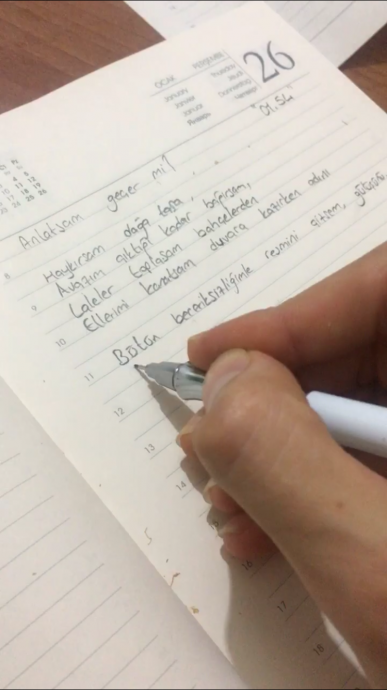 OCAK
January
Janvier
Januar
Январь
PERŞEMBE
Thursday
Jeudi
Donnerstag
Четверг
26
"01.54"
Anlatsam geçer mi? . . .
8
Haykırsam dağa taşa,
Avazım çıktığı kadar bağırsam,
9
Laleler toplasam bahçelerden
Ellerimi kanatsam duvara kazırken adını
10
Bütün beceriksizliğimle resmini çizsem,
11
12
13
14
15
16
17
18